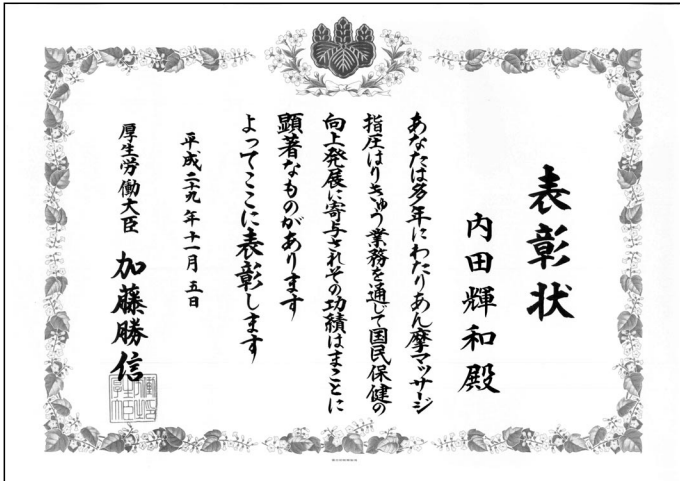 表彰状
内田輝和殿
あなたは多年にわたりあん摩マッサージ
指圧はりきゅう業務を通じて国民保健の
向上発展に寄与されその功績はまことに
顕著なものがあります
よってここに表彰します
平成二十九年十一月五日
厚生労働大臣 加藤勝信